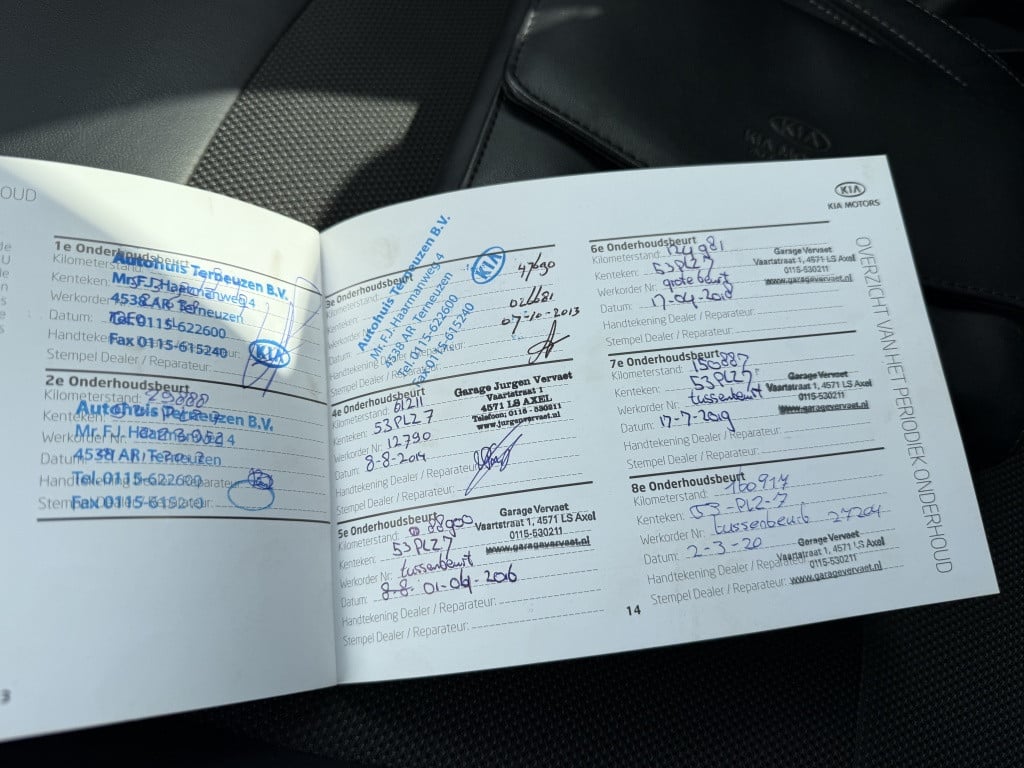 OUD
1e Onderhoudsbeurt
Kilometerstand:
Autohuis Terneuzen B.V.
Kenteken:
Mr. F.J. Haarmanweg 4
Werkorder
4538 AR Terneuzen
Datum:
Tel. 0115-622600
Handtekening Reparateur:
Fax 0115-615240
KIA
Stempel Dealer / Reparateur:
2e Onderhoudsbeurt
Kilometerstand: 29888
Autohuis Terneuzen B.V.
Kenteken:
Mr. F.J. Haarmanweg 4
Werkorder Nr.
4538 AR Terneuzen
Datum:
Tel. 0115-622600
Fax 0115-615240
3
3e Onderhoudsbeurt
Kilometerstand: 47690
Kenteken:
Datum: 07-10-2013
Stempel Dealer / Reparateur:
Autohuis Terneuzen B.V.
Mr. F.J. Haarmanweg 4
4538 AR Terneuzen
Tel. 0115-622600
Fax 0115-615240
KIA
4e Onderhoudsbeurt
Kilometerstand: 61211
Kenteken: 53PLZ7
Werkorder Nr: 12790
Datum: 8-8-2014
Handtekening Dealer / Reparateur:
Stempel Dealer / Reparateur:
Garage Jurgen Vervaet
Vaartstraat 1
4571 LS AXEL
Telefoon: 0115 - 530211
www.jurgenvervaet.nl
5e Onderhoudsbeurt
Kilometerstand: 88900
Kenteken: 53PLZ7
Werkorder Nr: tussenbeurt
Datum: 8-8- 01-04-2016
Handtekening Dealer / Reparateur:
Stempel Dealer / Reparateur:
Garage Vervaet
Vaartstraat 1, 4571 LS Axel
0115-530211
www.garagevervaet.nl
14
KIA
KIA MOTORS
6e Onderhoudsbeurt
Kilometerstand: 124981
Kenteken: 53PLZ7
Werkorder Nr: grote beurt
Datum: 17-04-2018
Handtekening Dealer / Reparateur:
Stempel Dealer / Reparateur:
Garage Vervaet
Vaartstraat 1, 4571 LS Axel
0115-530211
www.garagevervaet.nl
7e Onderhoudsbeurt
Kilometerstand: 150887
Kenteken: 53PLZ7
Werkorder Nr: tussenbeurt
Datum: 17-7-2019
Handtekening Dealer / Reparateur:
Stempel Dealer / Reparateur:
Garage Vervaet
Vaartstraat 1, 4571 LS Axel
0115-530211
www.garagevervaet.nl
8e Onderhoudsbeurt
Kilometerstand: 160914
Kenteken: 53-PLZ-7
Werkorder Nr: tussenbeurt 27204
Datum: 2-3-20
Handtekening Dealer / Reparateur:
Stempel Dealer / Reparateur:
Garage Vervaet
Vaartstraat 1, 4571 LS Axel
0115-530211
www.garagevervaet.nl
OVERZICHT VAN HET PERIODIEK ONDERHOUD
KIA